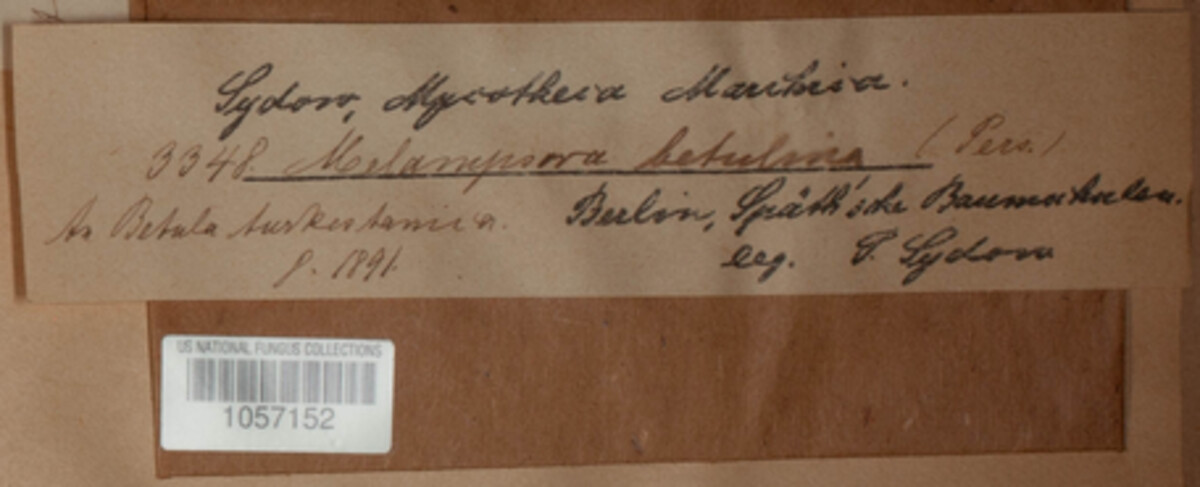 Sydow, Mycotheca Marchica.
3348. Melampsora betulina (Pers.)
An Betula turkestanica. Berlin, Späth'sche Baumschulen.
8. 1891. leg. P. Sydow
US NATIONAL FUNGUS COLLECTIONS
1057152